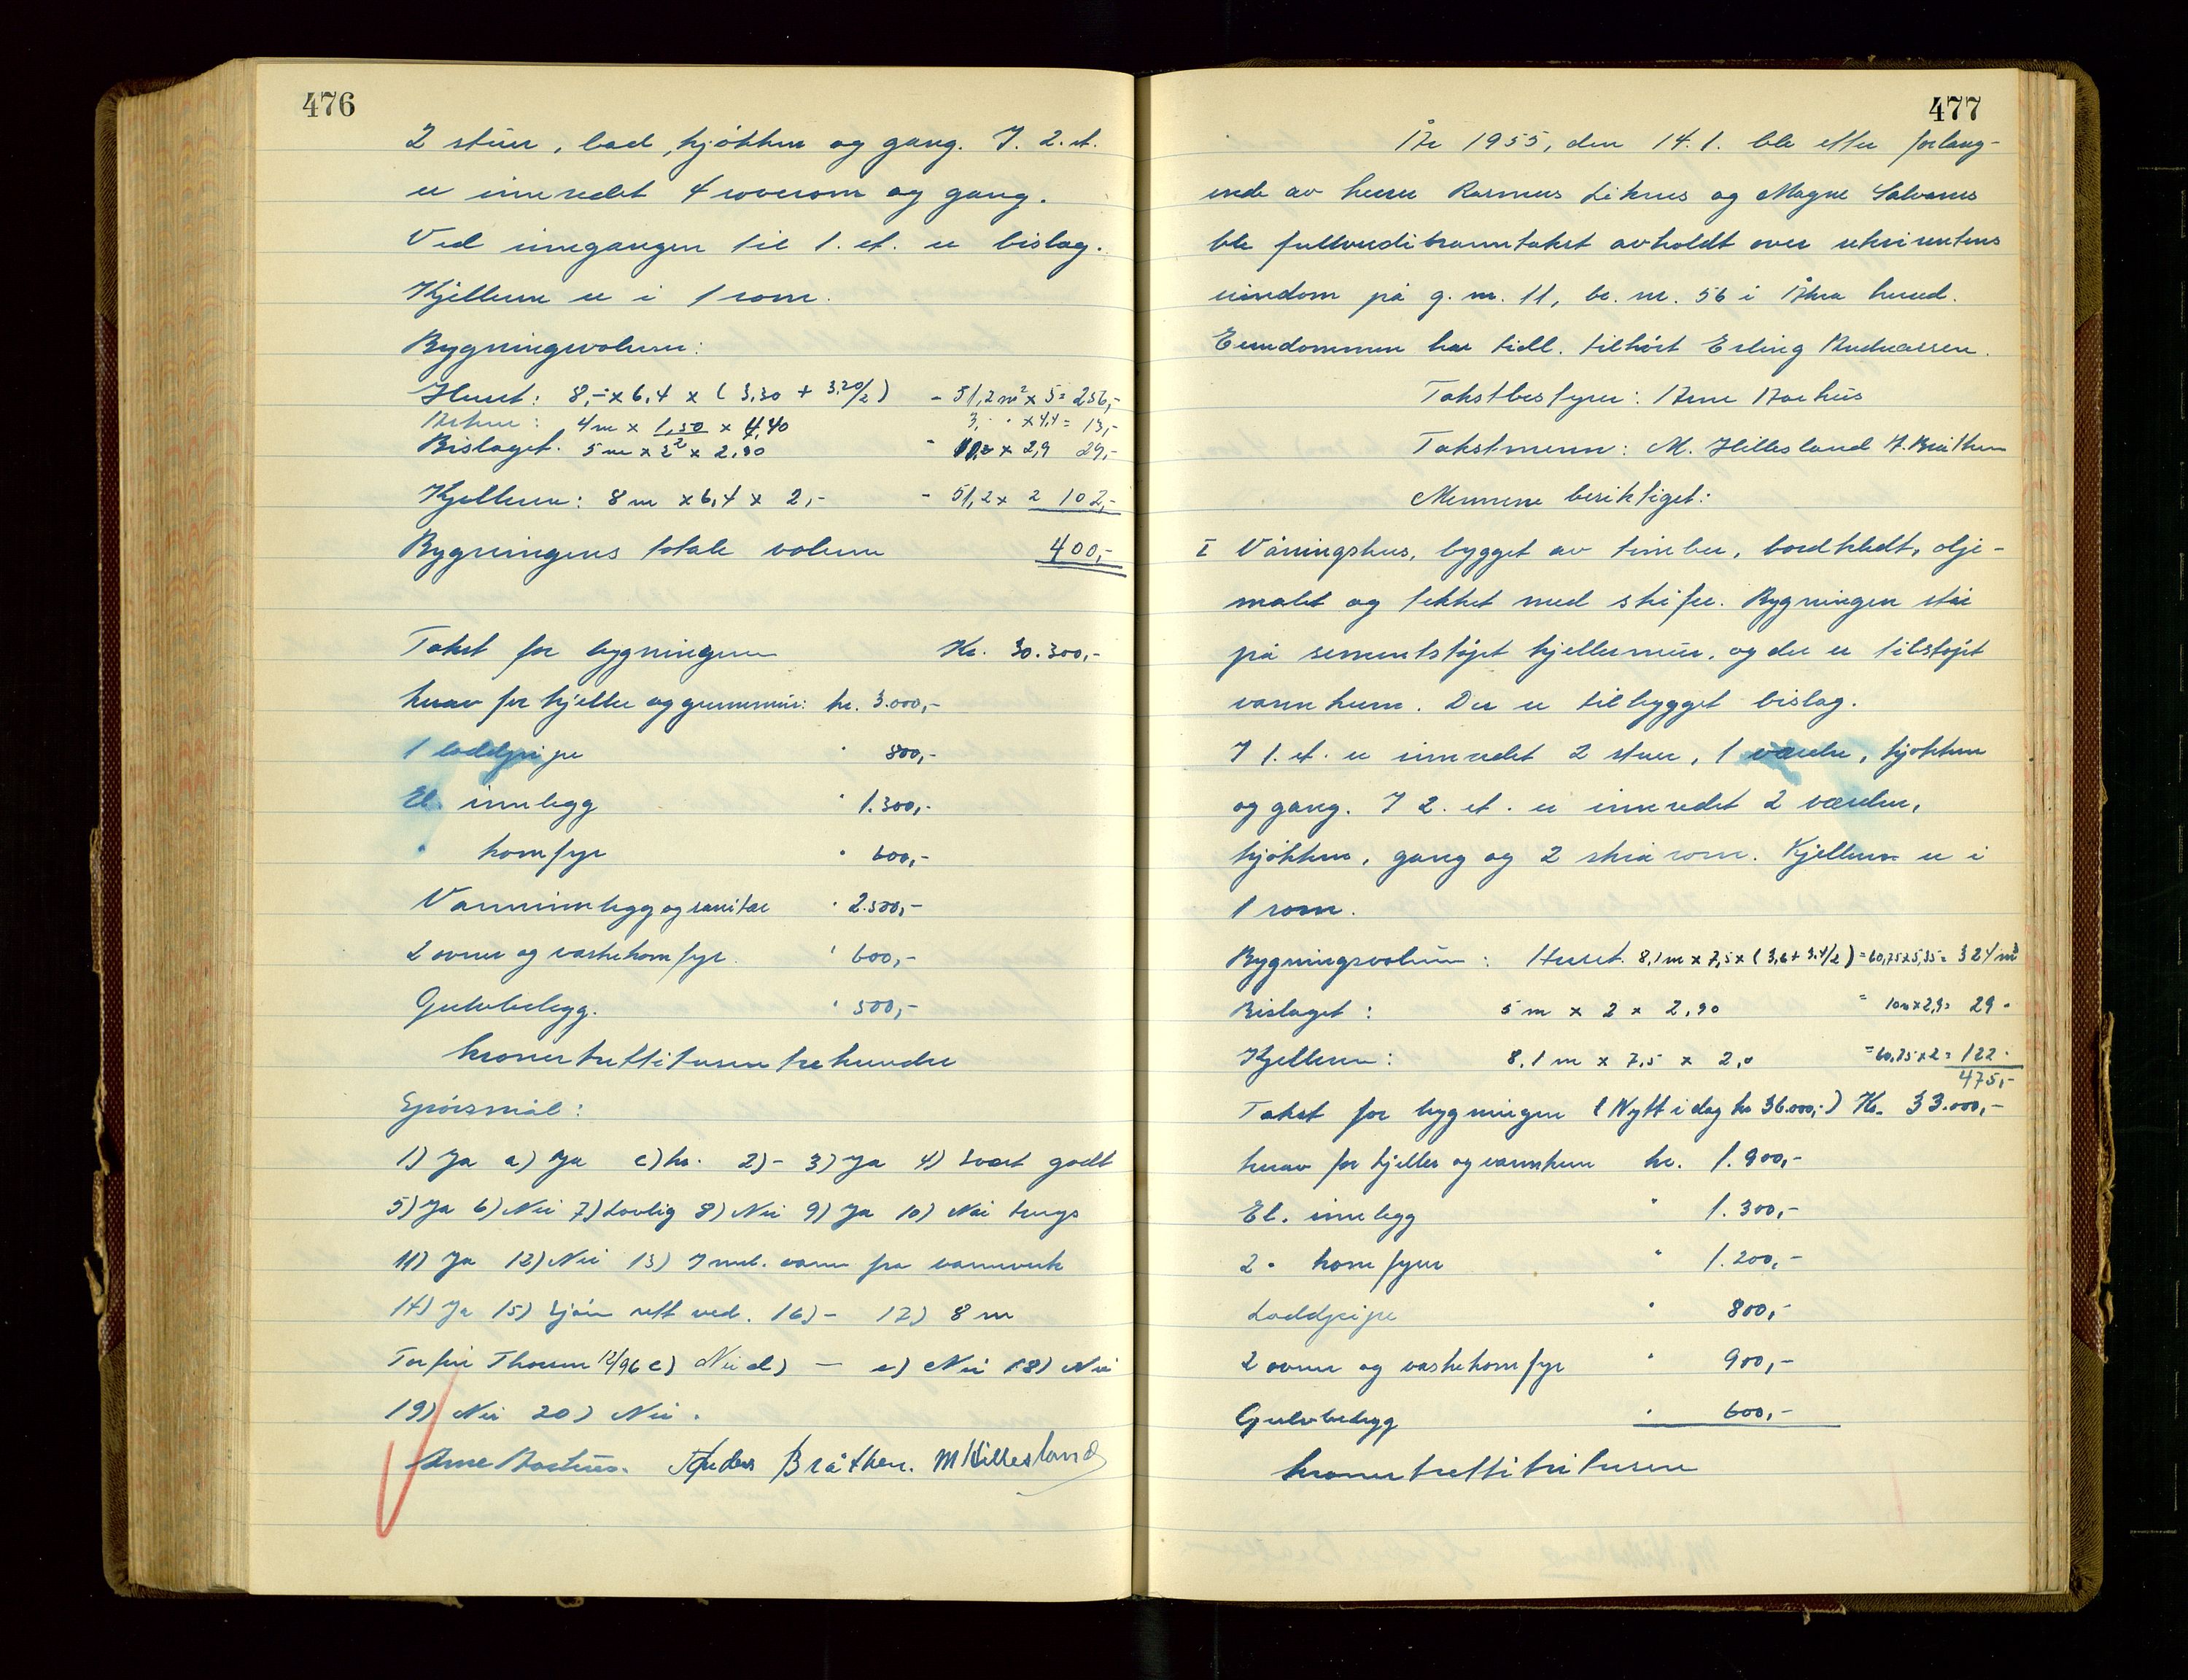 476
2 stuer, bad, kjökken og gang. I. 2. et.
er innredet 4 soverom og gang.
Ved inngangen til 1. et. er bislag.
Kjelleren er i 1 rom.
Bygningsvolum:
Huset: 8,- x 6,4 x (3,30 + 3,20/2) - 51,2 m² x 5 = 256,-
Arken: 4 m x 1,50/2 x 4,40 3,- " x 4,4 = 13,-
Bislaget. 5 m x 2 x 2,90 x 2,9 29,-
Kjelleren: 8 m x 6,4 x 2,- - 51,2 x 2 102,-
Bygningens totale volum 400,-
Takst for bygningen Kr. 30.300,-
herav for kjeller og grunnmur: kr. 3.000,-
1 loddpipe " 800,-
El. innlegg " 1.300,-
" komfyr " 600,-
Vanninnlegg og sanitær " 2.500,-
2 ovner og vaskekomfyr. " 600,-
Gulvbelegg. " 500,-
kroner trettitusen trehundre
Spörsmål:
1) Ja a) Ja c) kr. 2) - 3) Ja 4) Svært godt
5) Ja 6) Nei 7) Lovlig 8) Nei 9) Ja 10) Nei
11) Ja 12) Nei 13) Innl. vann fra vannverk
14) Ja 15) Sjöen rett ved. 16) - 17) 8 m
12/96 c) Nei d) — e) Nei 18) Nei
19) Nei 20) Nei.
Arne Aarhus. Anders Bråthen. M Hillesland
477
År 1955, den 14.1. ble etter forlang-
ende av herrer Rasmus Liknes og Magne Salvanes
ble fullverdibranntakst avholdt over rekvirentens
eiendom på g. nr. 11, br. nr. 56 i Åkra herred.
Eiendommen har tidl. tilhört Erling Andreassen.
Takstbestyrer: Arne Aarhus
Takstmenn: M. Hillesland A. Bråthen
Mennene besiktiget:
I Våningshus, bygget av timber, bordkledt, olje-
malet og tekket med skifer. Bygningen står
på sementstöpt kjellermur, og der er tilstöpt
vannkum. Der er tilbygget bislag.
I 1. et. er innredet 2 stuer, 1 værelse, kjökken
og gang. I 2. et. er innredet 2 værelser,
kjökken, gang og 2 skrå rom. Kjelleren er i
1 rom.
Bygningsvolum: Huset. 8,1 m x 7,5 x (3,6 + 3,4/2) = 60,75 x 5,35 = 324 m³
Bislaget: 5 m x 2 x 2,90 = 10 m x 2,9 = 29 -
Kjelleren: 8,1 m x 7,5 x 2,0 = 60,75 x 2 = 122 -
475,-
Takst for bygningen (Nytt i dag kr 36.000,-) Kr. 33.000,-
herav for kjeller og vannkum kr. 1.900,-
El. innlegg " 1.300,-
2 " komfyrer " 1.200,-
Loddpipe " 800,-
2 ovner og vaskekomfyr " 900,-
Gulvbelegg " 600,-
kroner trettitretusen